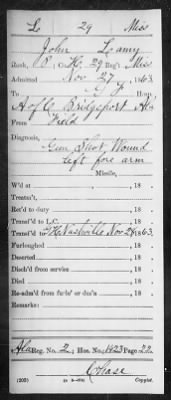 L 29 Miss
John Leamy
Rank, P Co. H. 29 Reg't Miss
Admitted Nov 27, 1863.
To G.H.
Hosp.
From Field
Diagnosis,
Gun Shot Wound
left fore arm
Missile,
W'd at 18 .
Treatm't,
Ret'd to duty 18 .
Transf'd to I.C. 18 .
Transf'd to G.H. Nashville Nov 28, 1863.
Furloughed 18 .
Deserted 18 .
Disch'd from service 18 .
Died 18 .
Re-adm'd from furlo' or des'n 18 .
Remarks:
Ala Reg. No. 2; Hos. No. 1423 Page 22
Chase
(203) Copyist.